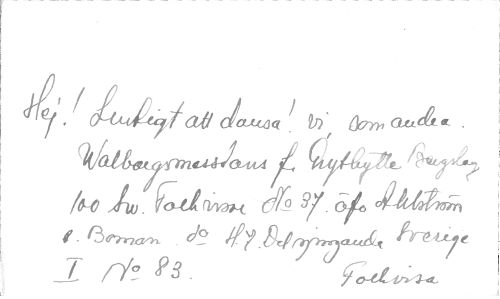 Hej! Lustigt att dansa! vi som andra.
Walborgsmessdans fr. Nyhytte Bergslag
100 Sv. Folkvisor No 37. öfv Ahlström
o. Boman. do H.7. Det sjungande Sverige
I No 83. Folkvisa